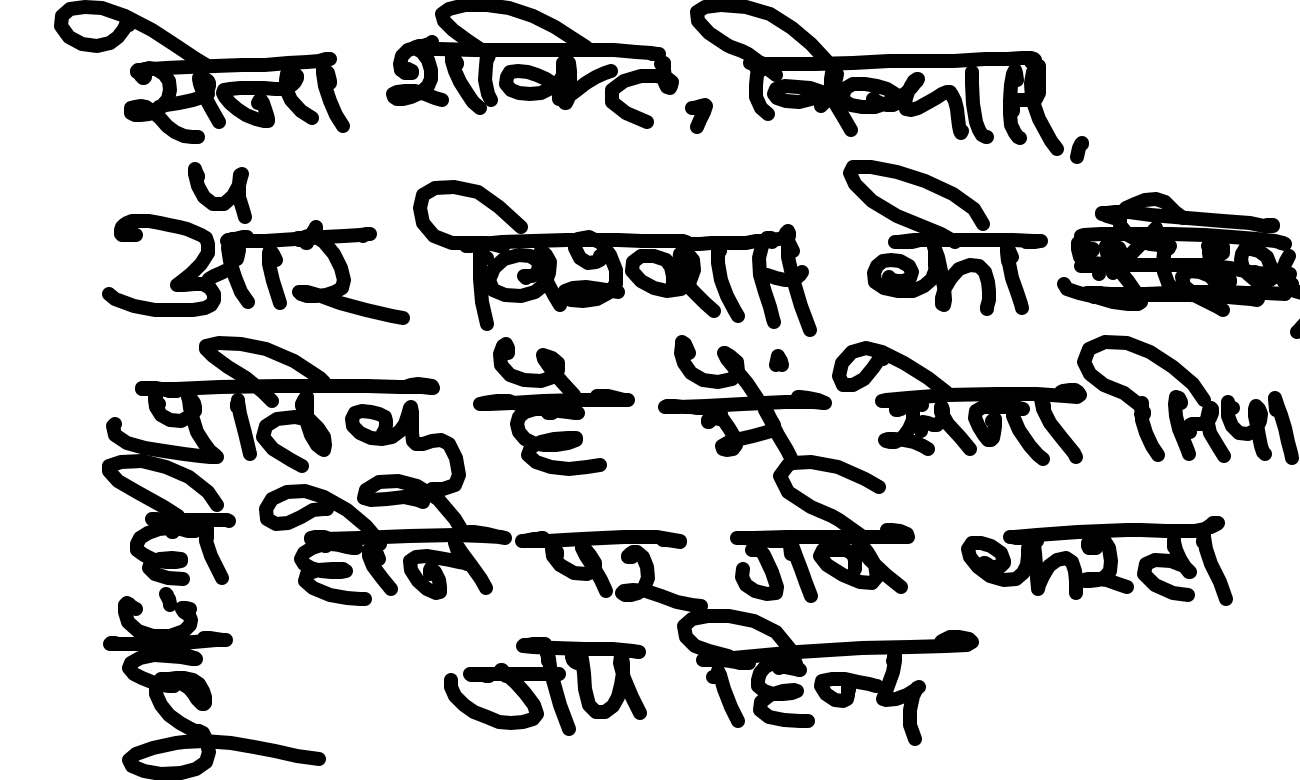 सेना शक्ति, विकास,
और विश्वास की
प्रतिक है मैं सेना सिपा
ही होने पर गर्व करता
हूँ जय हिन्द